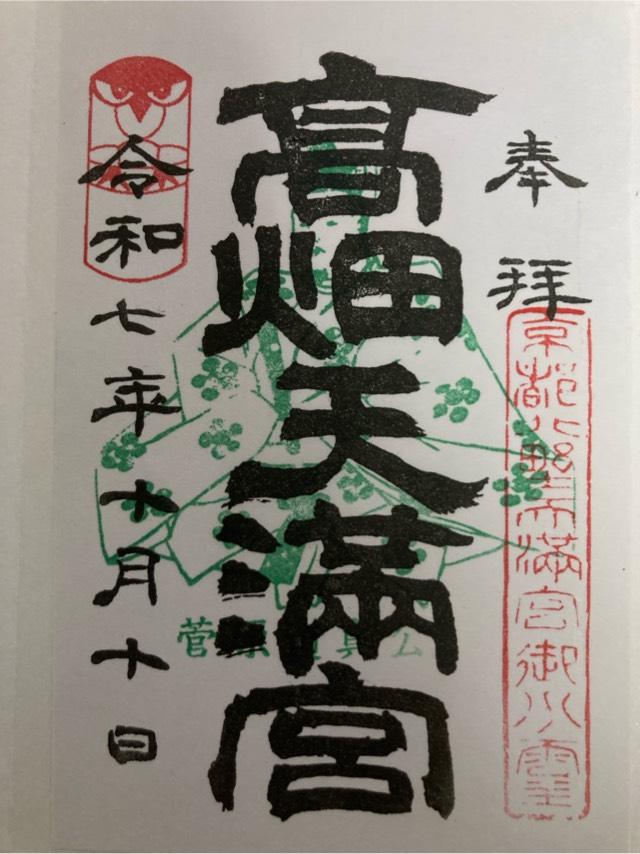 奉拝
京都北野天満宮御分霊
高畑天満宮
菅原道真公
令和七年十月十日